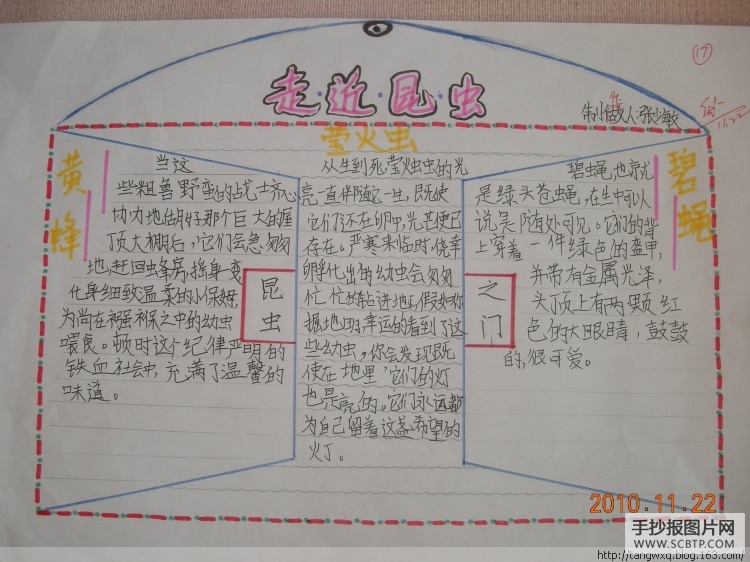 走近昆虫
17
制作人:张海敏
11.22
黄蜂
当这
些粗兽野蛮的战士齐心
协力地做好那个巨大的屋
顶大棚后,它们会急匆匆
地赶回蜂房摇身一变
化身细致温柔的小保姆
为尚在襁褓之中的幼虫
喂食。顿时这个纪律严明的
铁血社会中,充满了温馨的
味道。
昆虫
萤火虫
从生到死萤火虫的光
亮一直伴随这一生,既使
它们还在卵中,光芒便已
存在。严寒来临时,侥幸
孵化出的幼虫会匆匆
忙忙的钻进地下,假如你
掘地三
幸运的看到了这
些幼虫,你会发现既
使在地里,它们的灯
也是亮的。它们永远都
为自己留着这盏希望的
火丁。
之门
碧蝇
碧蝇也就
是绿头苍蝇,在生中可以
说是随处可见。它们的背
上穿着一件绿色的盔甲,
并带有金属光泽,
头顶上有两颗红
色的大眼睛,鼓鼓
的,很可爱。
2010.11.22
手抄报图片网
WWW.SCBTP.COM
http://tangwxq.blog.163.com/